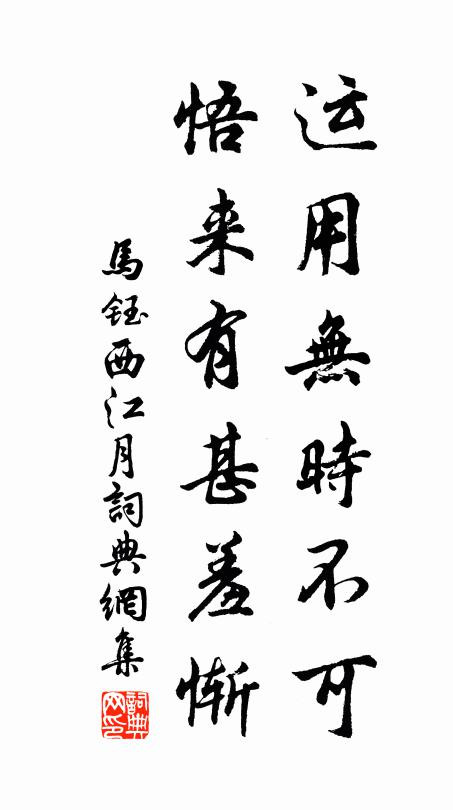 运用無時不可
悟来有甚羞慚
馬鈺西江月詞典網集
詞典网印